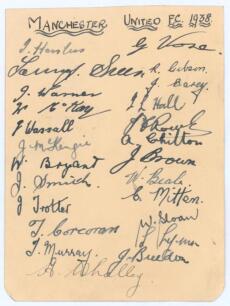 MANCHESTER UNITED F.C. 1938.
G Vose.
R. Gibson.
J. Warner
W McKay
J. Hall
J Wassall
J Rowley
J. McKenzie
A Chilton
W. Bryant
J Brown
J. Smith
W. Beale.
J Trotter
C. Mitten.
T. Corcoran
W. Sloan
T. Murray.
J. Breedon